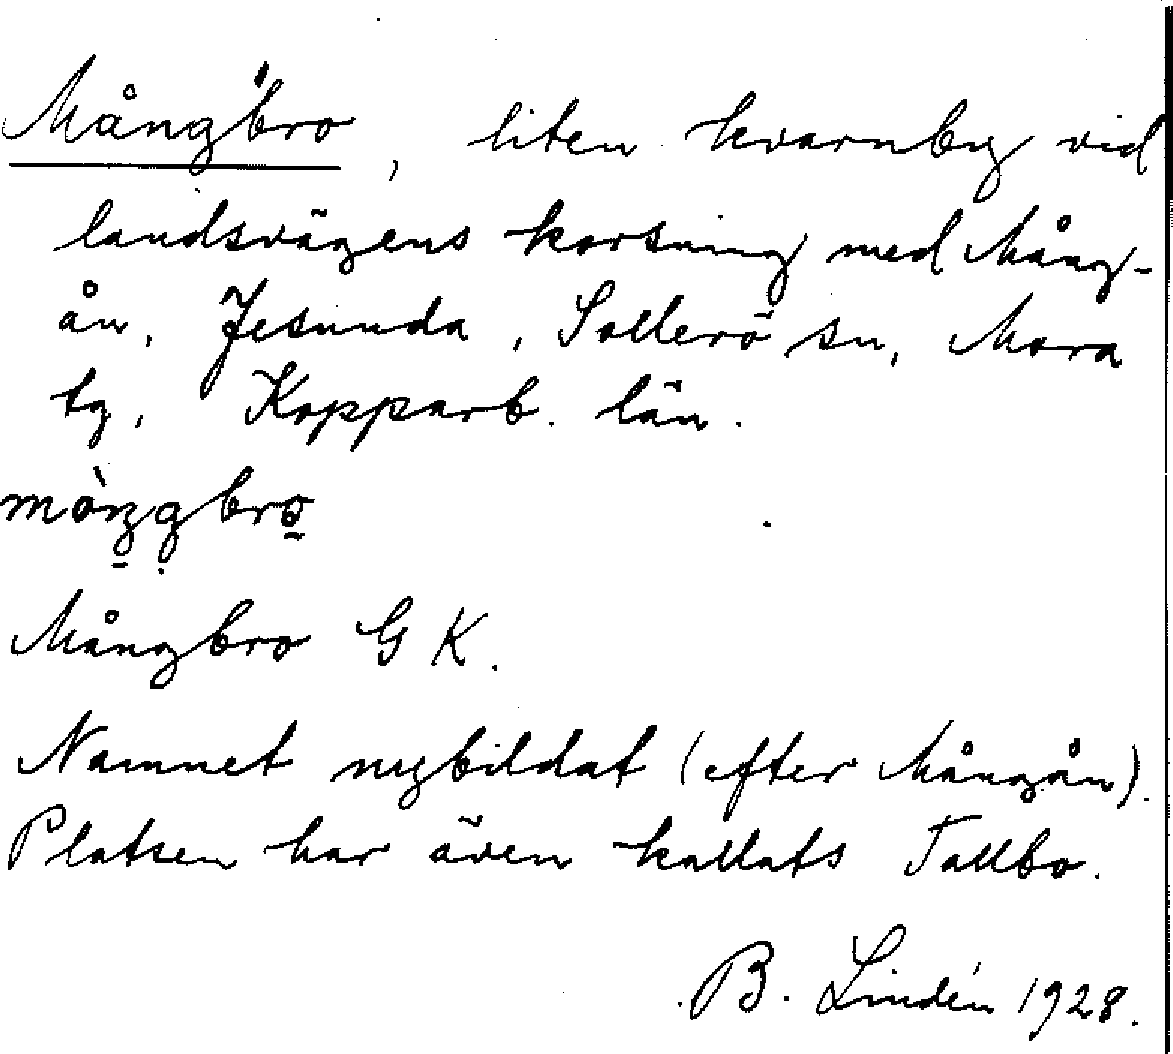 Mångbro, liten kvarnby vid
landsvägens korsning med Mång-
ån, Gesunda, Sollerö sn, Mora
tg, Kopparb. län.
Mångbro GK.
Namnet nybildat (efter Mångån).
Platsen har även kallats Tallbo.
B. Lindén 1928.